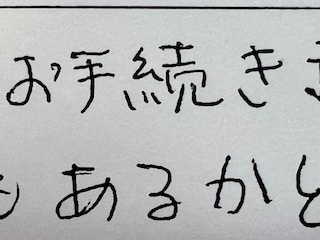 お手続き
あるかと